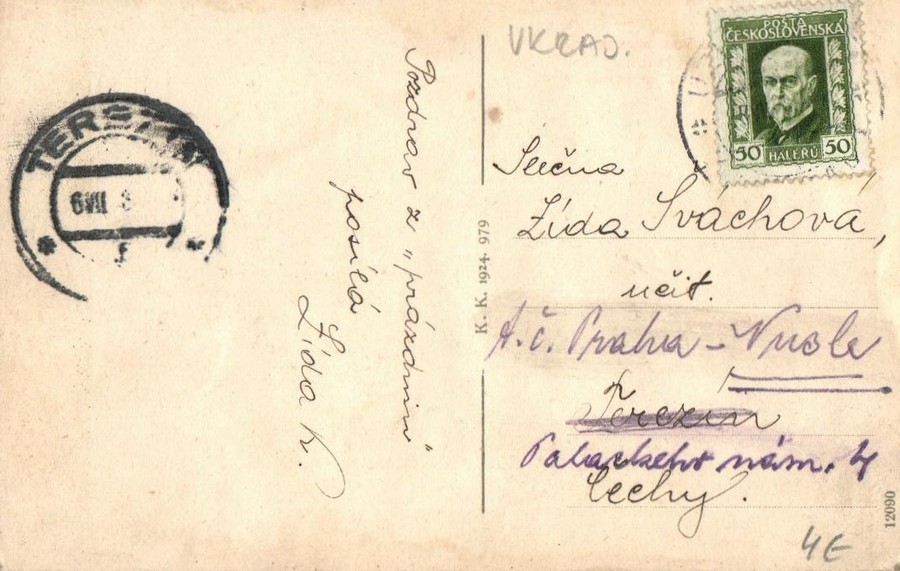 VKRAD.
POŠTA
ČESKOSLOVENSKÁ
50 HALÉŘŮ 50
6 VII 3
Pozdrav z „prázdnin“
posílá
Lída K.
K. K. 1924. 979
Slečna
Lída Sváchová,
učit.
A. č. Praha - Nusle
Terezín
Palackeho nám. 4
Čechy.
12090
4E